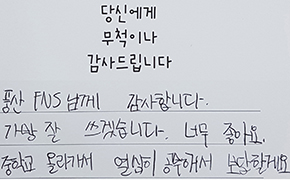 당신에게
무척이나
감사드립니다
풍산 FNS님께 감사합니다.
가방 잘 쓰겠습니다. 너무 좋아요.
중학교 올라가서 열심히 공부해서 보답할게요